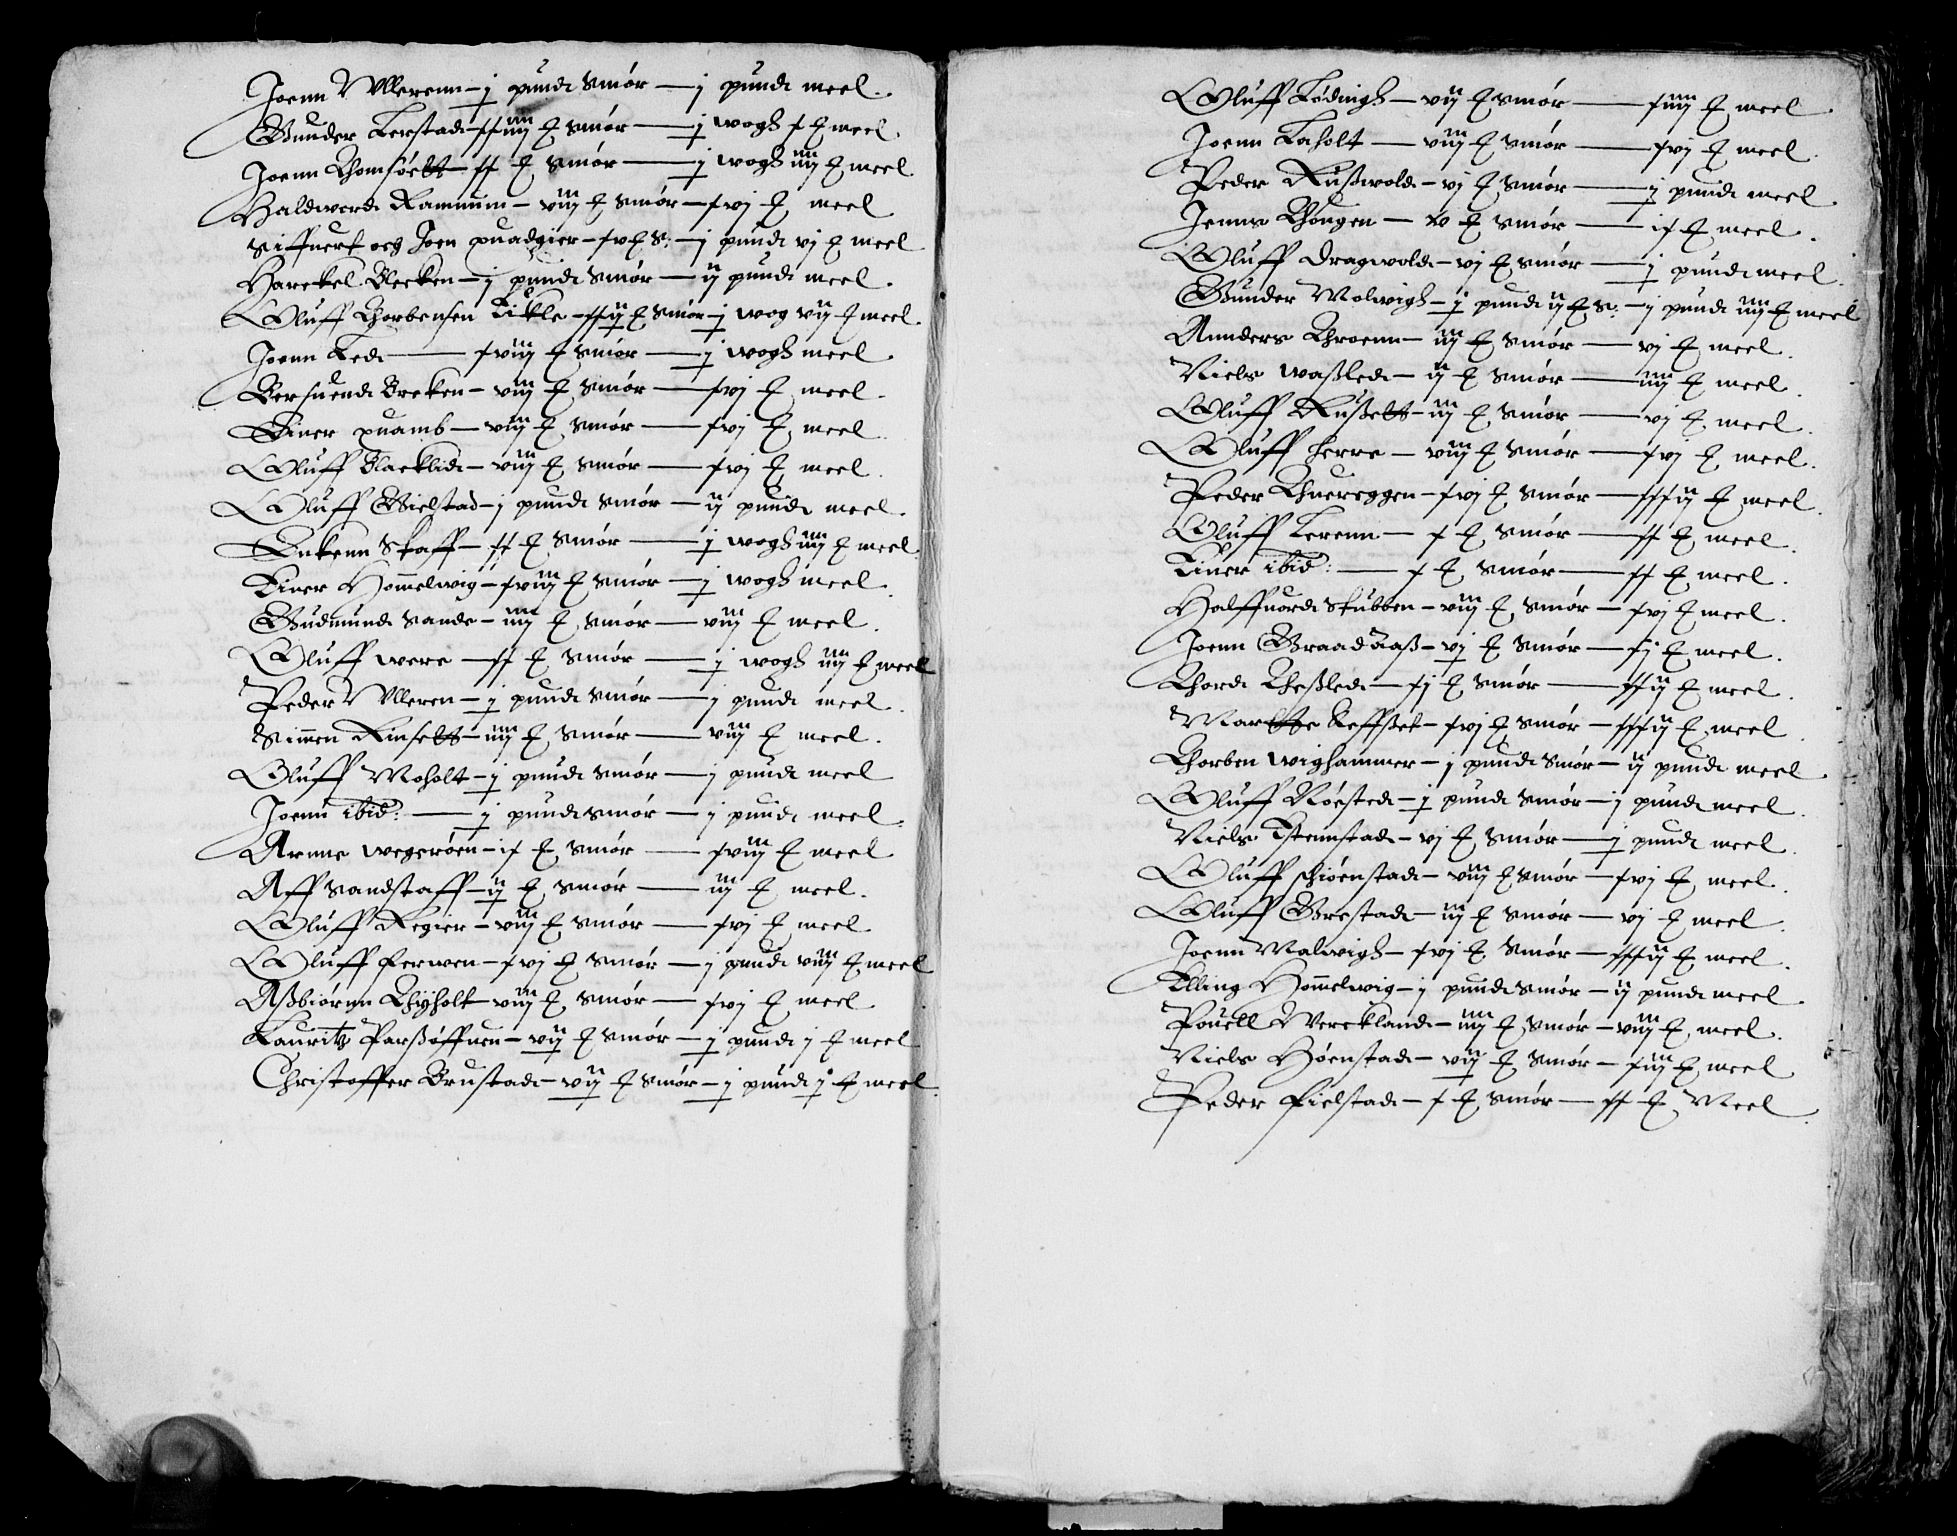 Joenn Vllerenn – j pundt smór — j pundt meel.
Gunder Lerstadt – xxiiij £ smór — j wogh x £ meel.
Joenn Thomsóett – xx £ smór — j wogh iiij £ meel
Haldword Rammem – viij £ smór – xvj £ meel
Siffuert och Joen quadgier – xv £ S: – j pundt vj £ meel
Harekel Blecken – j pundt smór — ij pundt meel.
Oluff Thorbensen Likle – xxij £ smór – j wog vij £ meel.
Joenn Ledt — xviij £ smór — j wogh meel.
Bersuendt Brecken – viij £ smór — xvj £ meel.
Einer quamb – viij £ smór — xvj £ meel.
Oluff Blacklidt – viij £ smór — xvj £ meel.
Oluff Gielstad – j pundt smór — ij pundt meel.
Enkenn Staff – xx £ smór — j wogh iiij £ meel.
Einer Hommelwig – xviij £ smór — j wogh meel.
Gudmundt Sande – iiij £ smór — viij £ meel.
Oluff were – xx £ smór — j wogh iiij £ meel
Peder Vlleren – j pundt smór — j pundt meel.
Simen Rinsett – iiij £ smór — viij £ meel.
Oluff Moholt – j pundt smór — j pundt meel
Joenn ibid: — j pundt smór — j pundt meel.
Arnne wegeróen – ix £ smór — xviij £ meel
Aff Sandstaff – ij £ smór — iij £ meel.
Oluff Regier – viij £ smór — xvj £ meel.
Oluff Ferwen – xvj £ smór — j pundt viij £ meel
Aßbiórnn Thyholt – viij £ smór — xvj £ meel.
Lauritz Parßóffuen – vij £ smór – j pundt j £ meel
Christoffer Brustadt – vij £ smór – j pundt j £ meel.
Oluff Lódingh – vij £ smór — xiiij £ meel.
Joenn Laholt — viij £ smór — xvj £ meel.
Peder Rußwoldt – vj £ smór — j pundt meel.
Jenns Thougen — v £ smór — ix £ meel.
Oluff Dragwoldt – vj £ smór — j pundt meel.
Gunder Molwigh – j pundt ij £ S: – j pundt iiij £ meel
Annders Throenn – iij £ smór — vj £ meel.
Niels waßledt – ij £ smór — iiij £ meel.
Oluff Rußett – iij £ smór — vj £ meel.
Oluff herre – viij £ smór — xvj £ meel.
Peder Thuereggen – xvj £ smór — xxxij £ meel.
Oluff Lerenn — x £ smór — xx £ meel.
Einer ibid: — x £ smór — xx £ meel.
Halffuordt Stubben – viij £ smór – xvj £ meel.
Joenn Graad Aaß – vj £ smór — xij £ meel.
Thordt Theßledt – xj £ smór — xxij £ meel.
Martte Reffßet – xvj £ smór – xxxij £ meel.
Thorben wighammer – j pundt smór – ij pundt meel
Oluff Róestedt – j pundt smór – j pundt meel.
Niels Estennstadt – vj £ smór — j pundt meel.
Oluff Schióenstadt – viij £ smór – xvj £ meel.
Oluff Grestadt – iij £ smór — vj £ meel.
Joenn Malwigh – xvj £ smór – xxxij £ meel.
Elling Hommelwig – j pundt smór – ij pundt meel
Pouell Wereklandt – iiij £ smór – viij £ meel.
Niels Hóenstadt – vij £ smór – xiij £ meel
Peder Fielstadt – x £ smór — xx £ Meel.